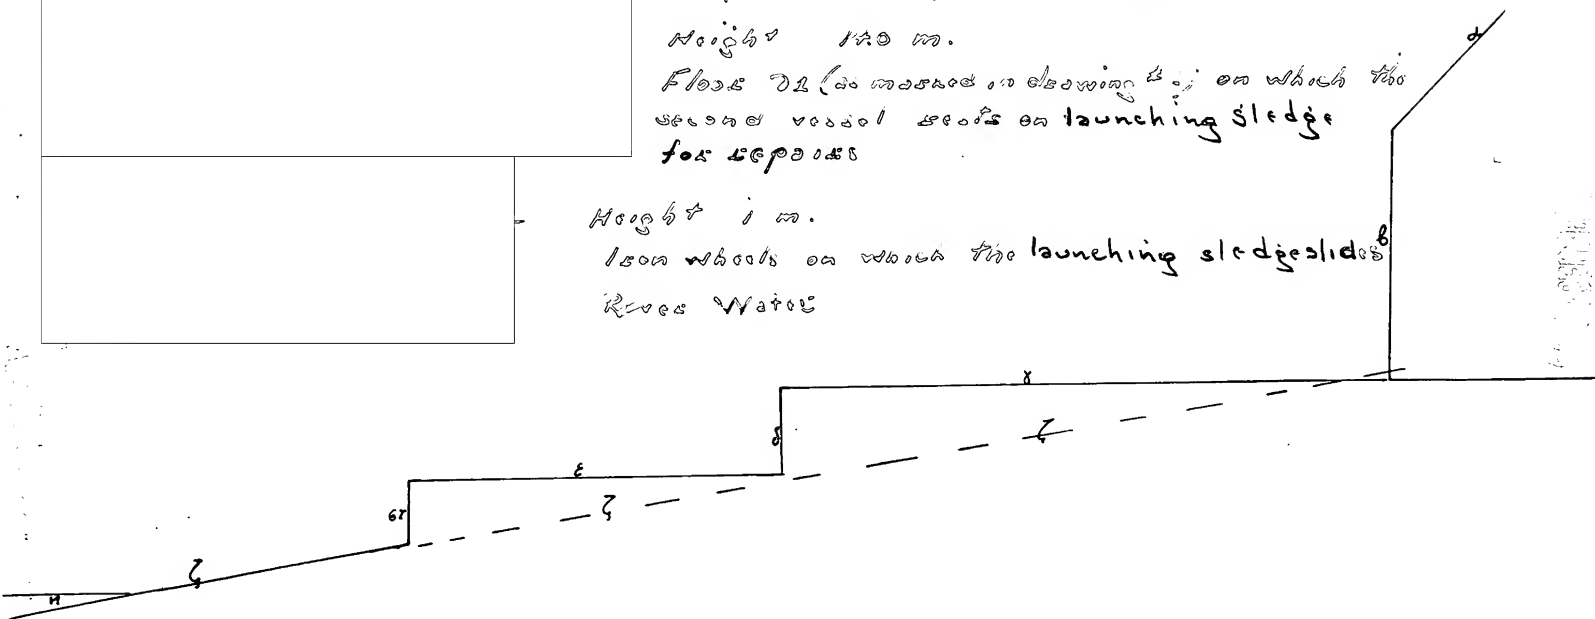 Height 1.20 m.
Floor 21 (as marked in drawing on which the
second vessel rests on launching sledge
for repairs
Height 1 m.
Iron wheels on which the launching sledge slides
River Water
α
β
γ
δ
ζ
ε
ζ
στ
ζ
H